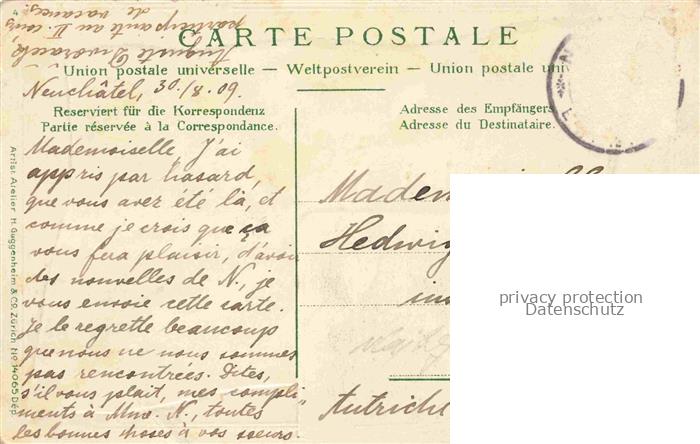 CARTE POSTALE
Union postale universelle — Weltpostverein — Union postale uni
Neuchâtel, 30./8.09.
Reserviert für die Korrespondenz
Partie réservée à la Correspondance.
Adresse des Empfängers
Adresse du Destinataire.
Mademoiselle J'ai
appris par hasard,
que vous avez été là, et
comme je crois que ça
vous fera plaisir, d'avoir
des nouvelles de N., je
vous envoie cette carte.
Je le regrette beaucoup
que nous ne nous sommes
pas rencontrées. Dites,
s'il vous plait, mes compli-
ments à Mme. N., toutes
les bonnes choses à vos soeurs.
Auguste
participante au II cours
de vacances.
Madem
Hedwig
Autriche
Artist. Atelier H. Guggenheim & Co. Zürich No. 14065 Dép.
privacy protection
Datenschutz